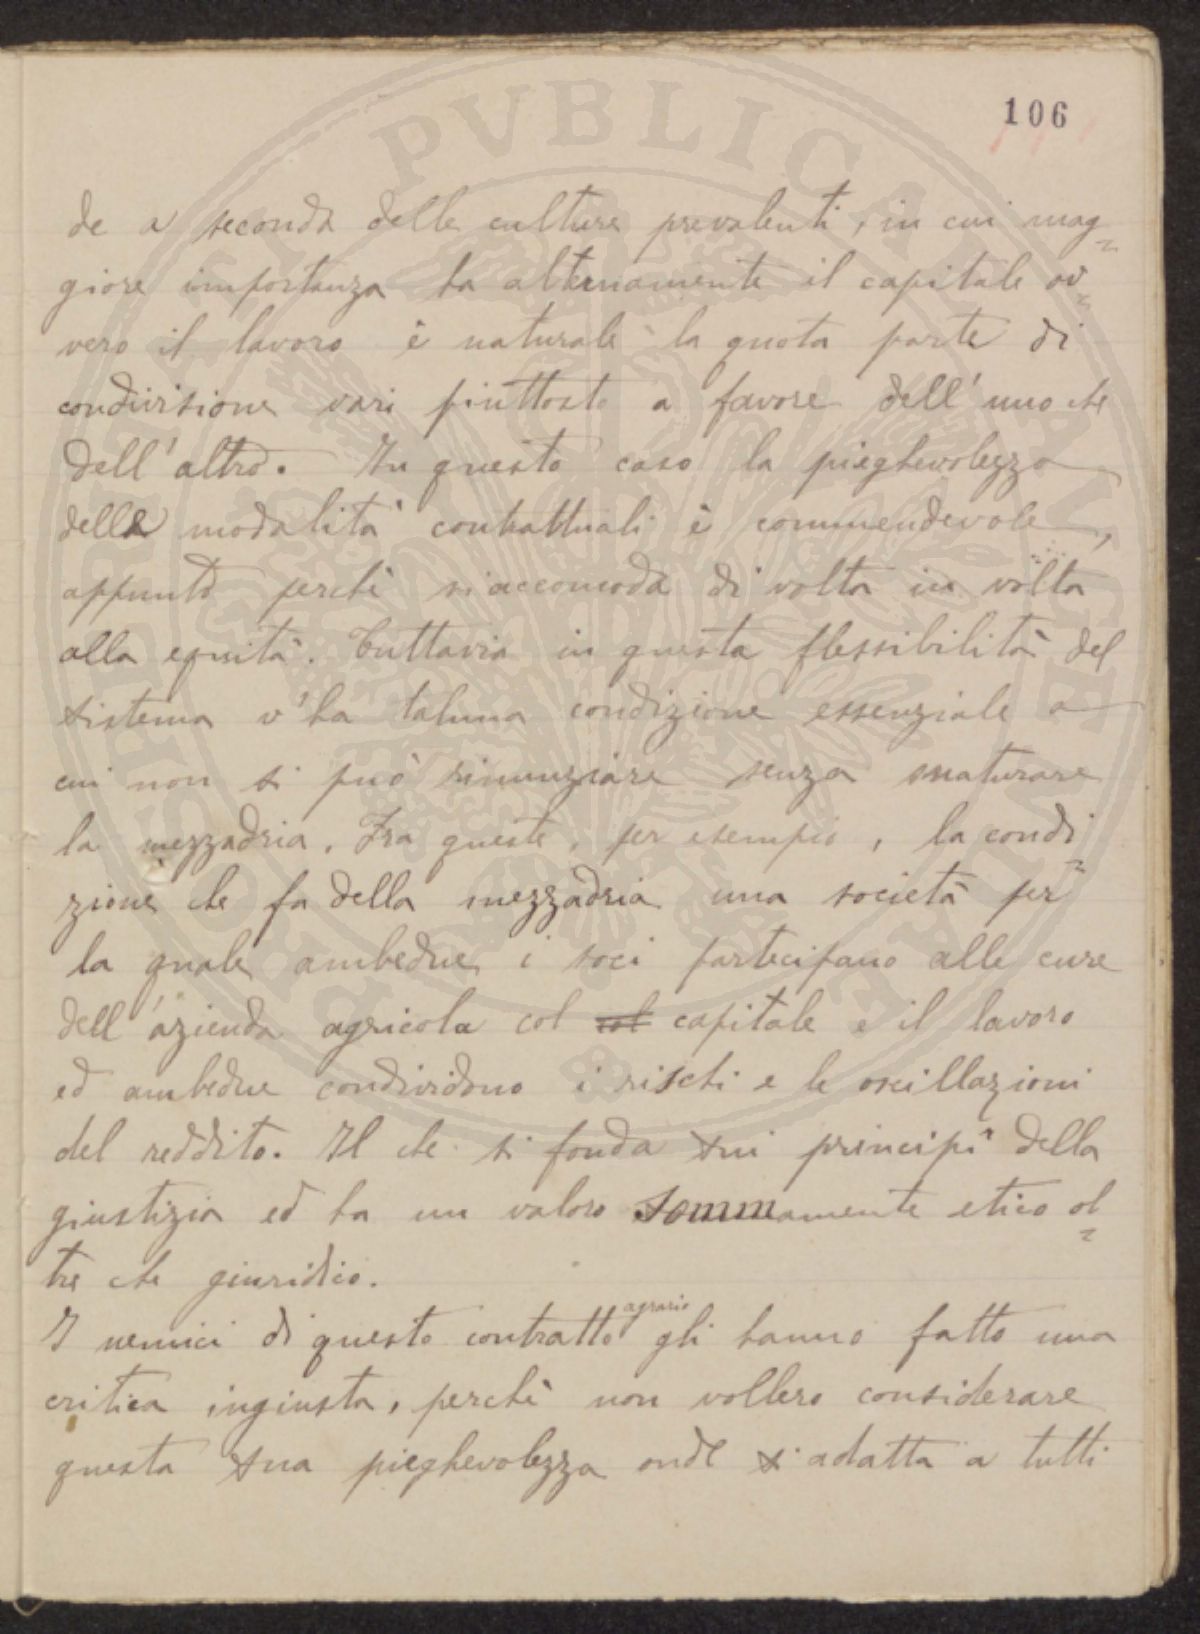 106
de a seconda delle culture prevalenti, in cui mag=
giore importanza ha alternamente il capitale ov=
vero il lavoro è naturale la quota parte di
condivisione vari piuttosto a favore dell'uno che
dell'altro. In questo caso la pieghevolezza
delle modalità contrattuali è commendevole,
appunto perchè si accomoda di volta in volta
alla equità. Tuttavia in questa flessibilità del
sistema v'ha taluna condizione essenziale a
cui non si può rinunziare senza snaturare
la mezzadria. Fra queste, per esempio, la condi=
zione che fa della mezzadria una società per
la quale ambedue i soci partecipano alle cure
dell'azienda agricola col col capitale e il lavoro
ed ambedue condividono i rischi e le oscillazioni
del reddito. Il che si fonda sui principi della
giustizia ed ha un valore sommamente etico ol=
tre che giuridico.
I nemici di questo contratto agrario gli hanno fatto una
critica ingiusta, perchè non vollero considerare
questa sua pieghevolezza onde si adatta a tutti